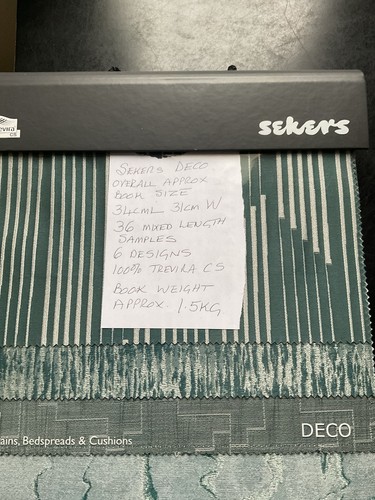 sekers
evira
CS
SEKERS DECO
OVERALL APPROX
BOOK SIZE
34CML 31CM W
36 MIXED LENGTH
SAMPLES
6 DESIGNS
100% TREVIRA CS
BOOK WEIGHT
APPROX. 1.5KG
DECO
ains, Bedspreads & Cushions